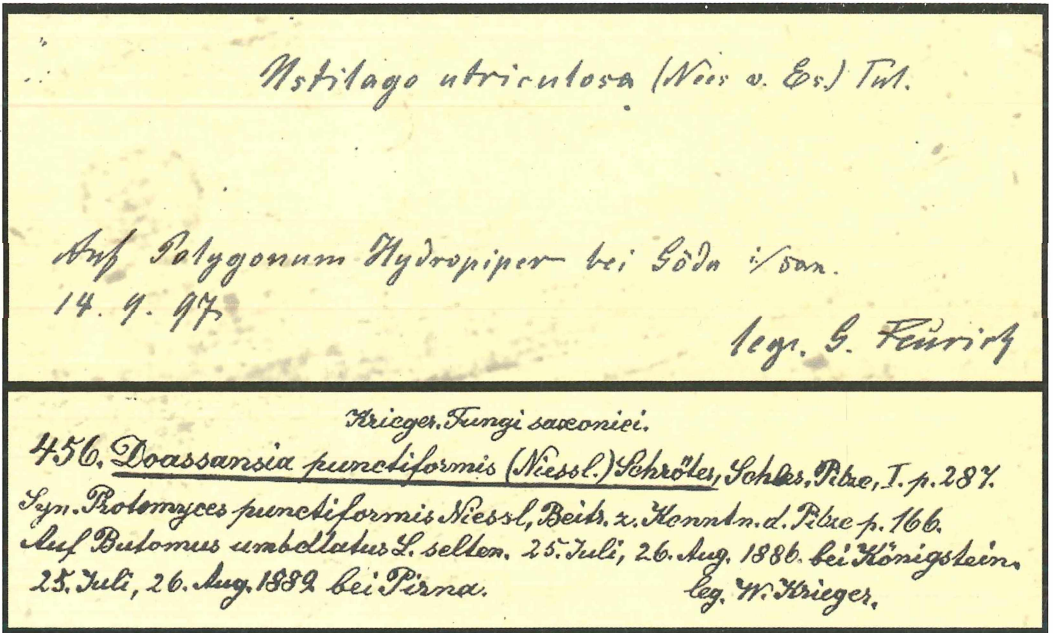 Ustilago utriculosa (Nees v. Es.) Tul.
Auf Polygonum Hydropiper bei Göda i/San.
14. 9. 97.
legr. G. Feurich
Krieger. Fungi saxonici.
456. Doassansia punctiformis (Niessl.) Schröter, Schles. Pilze, I. p. 287.
Syn. Protomyces punctiformis Niessl, Beitr. z. Kenntn. d. Pilze p. 166.
Auf Butomus umbellatus L. selten. 25. Juli, 26. Aug. 1886. bei Königstein.
25. Juli, 26. Aug. 1889 bei Pirna. leg. W. Krieger.